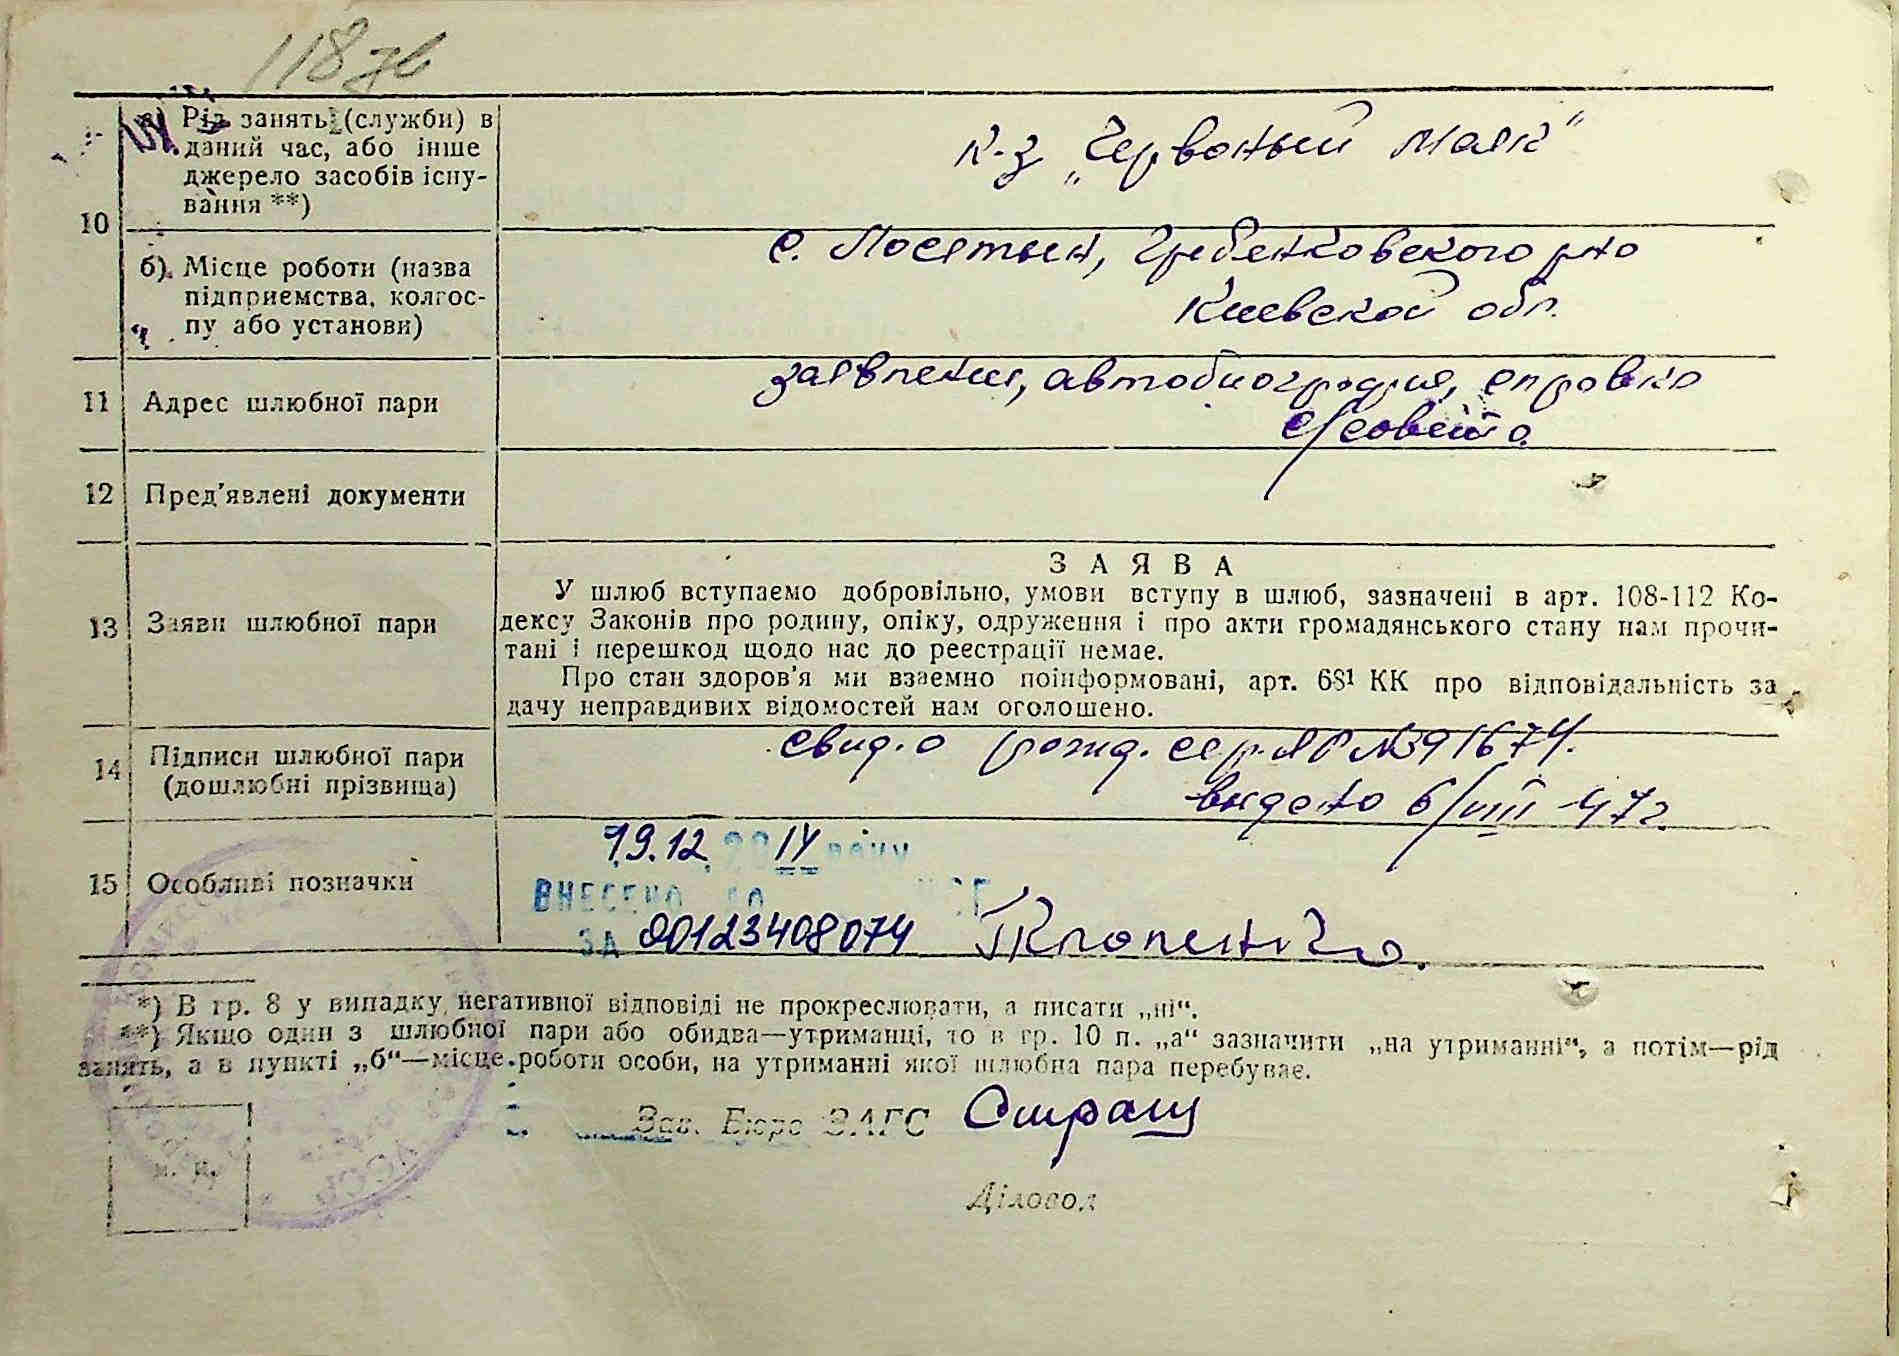 118 зв
а) Рід занять (службы) в
даний час, або інше
джерело засобів існу-
вання **)
к-з „Червоный Маяк"
10
б). Місце роботи (назва
підприємства, колгос-
пу або установи)
с. Лосятын, Гребенковского р-на
Киевской обл.
11 Адрес шлюбної пари
заявление, автобиография, справка
с/совета.
12 Пред'явлені документи
13 Заяви шлюбної пари
ЗАЯВА
У шлюб вступаємо добровільно, умови вступу в шлюб, зазначені в арт. 108-112 Ко-
дексу Законів про родину, опіку, одруження і про акти громадянського стану нам прочи-
тані і перешкод щодо нас до реєстрації немає.
Про стан здоров'я ми взаємно поінформовані, арт. 68¹ КК про відповідальність за
дачу неправдивих відомостей нам оголошено.
14 Підписи шлюбної пари
(дошлюбні прізвища)
свид. о рожд. сер. ЯР №391674.
выдано 6/VIII-47г.
15 Особливі позначки
19.12. 20 14 року
ВНЕСЕНО ДО
ЗА 00123408074
*) В гр. 8 у випадку негативної відповіді не прокреслювати, а писати „ні“.
**) Якщо один з шлюбної пари або обидва—утриманці, то в гр. 10 п. „а“ зазначити „на утриманні“, а потім—рід
занять, а в пункті „б“—місце роботи особи, на утриманні якої шлюбна пара перебуває.
Зав. Бюро ЗАГС
м. п.
Діловод